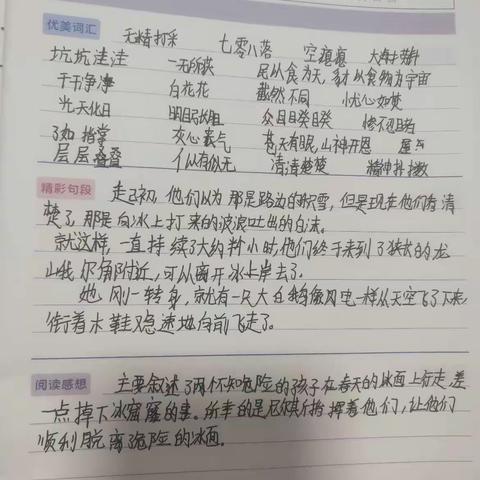 优美词汇
无精打采 七零八落 空荡荡 大海捞针
坑坑洼洼 一无所获 民以食为天,豺以食物为宇宙
干干净净 白花花 截然不同 忧心如焚
光天化日 明目张胆 众目睽睽 惨不忍睹
了如指掌 灰心丧气 苍天有眼,山神开恩
层层叠叠 似有似无 清清楚楚 精神抖擞
精彩句段
起初,他们以为那是路边的积雪,但是现在他们看清
楚了,那是向冰上打来的波浪吐出的白沫。
就这样,一直持续了大约半小时,他们终于来到了狭长的龙
尔角附近,可以离开冰上岸去了。
她刚一转身,就有一只大白鹅像闪电一样从天空飞了下来
衔着木鞋又急速地向前飞走了。
阅读感想
主要叙述了两个不知危险的孩子在春天的冰面上行走,差
一点掉下冰窟窿的事。所幸的是尼尔斯指挥着他们,让他们
顺利脱离危险的冰面。